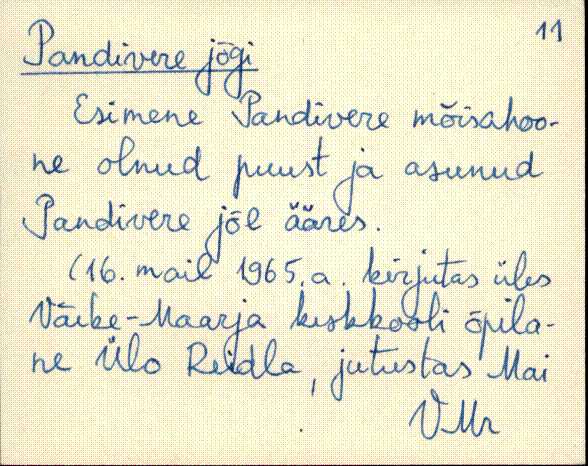 11
Pandivere jõgi
Esimene Pandivere mõisahoo-
ne olnud puust ja asunud
Pandivere jõe ääres.
(16. mail 1965. a. kirjutas üles
Väike-Maarja keskkooli õpila-
ne Ülo Reidla, jutustas Mai
VMr